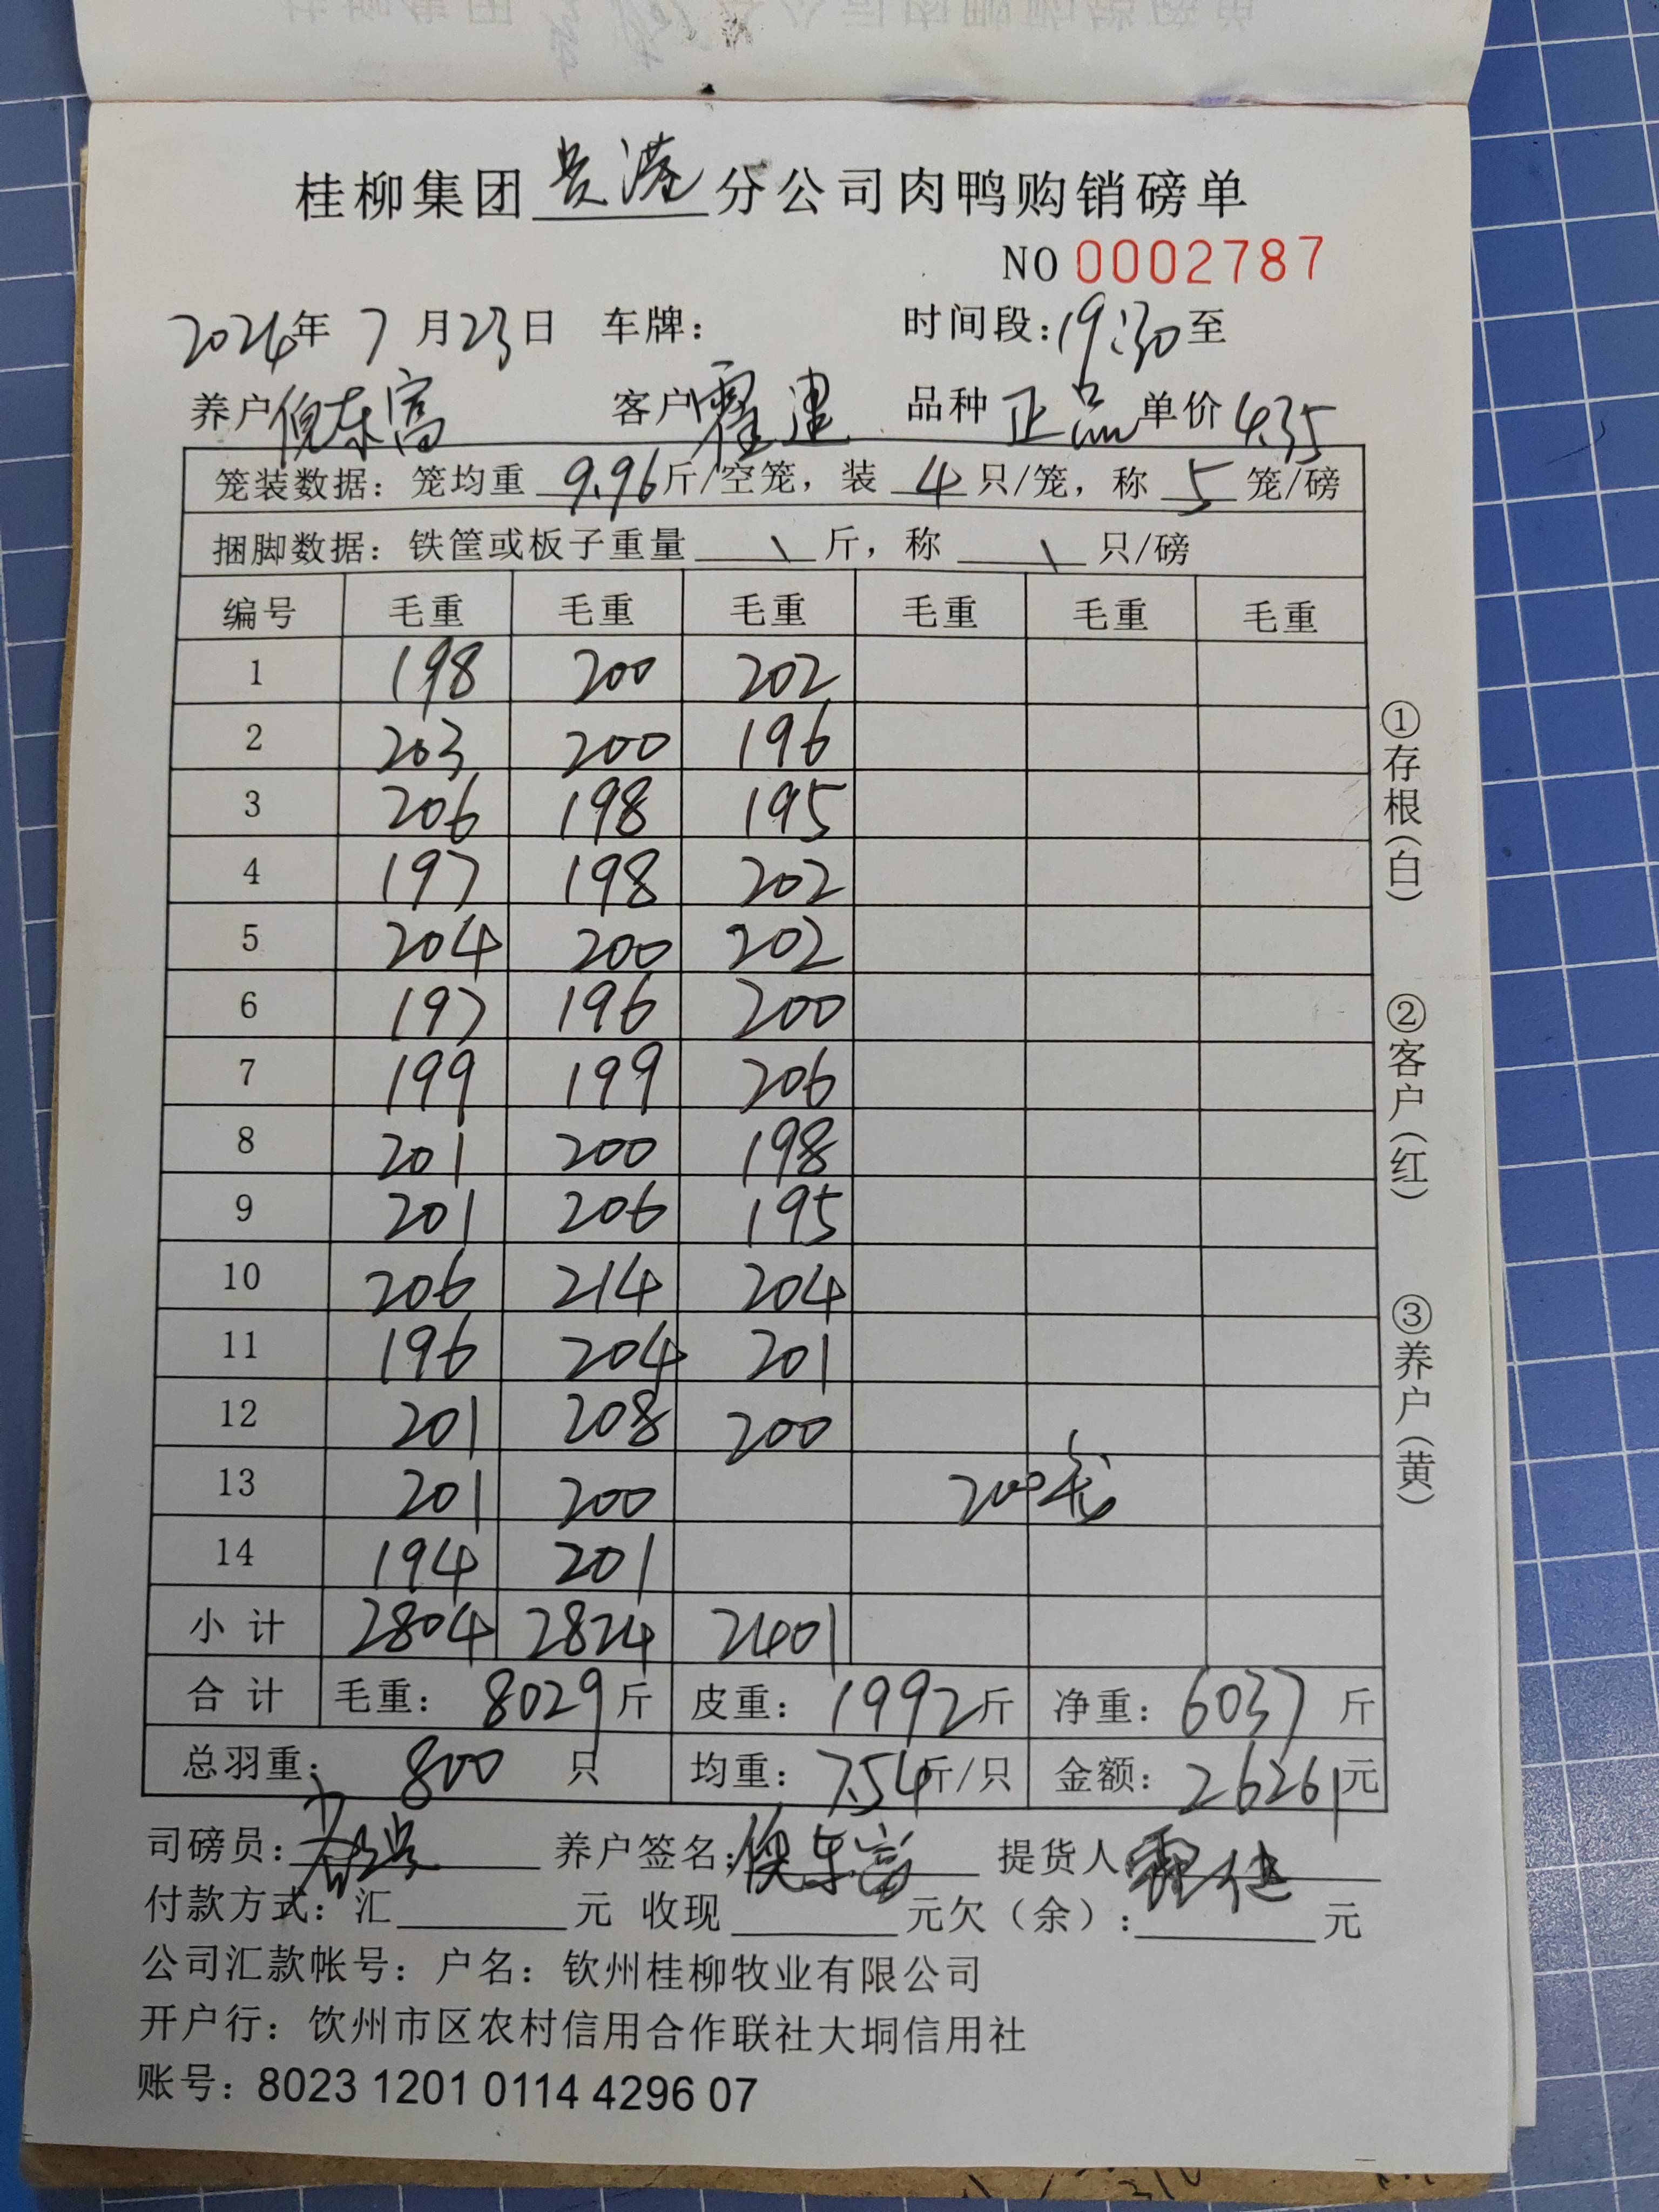 桂柳集团贵港分公司肉鸭购销磅单
NO 0002787
2024年 7 月23日 车牌： 时间段：19:30至
养户倪东富 客户霍建 品种 正品 单价4.35
笼装数据：笼均重 9.96斤/空笼，装 4 只/笼，称 5 笼/磅
捆脚数据：铁筐或板子重量 \ 斤，称 \ 只/磅
编号 毛重 毛重 毛重 毛重 毛重 毛重
1 198 200 202
2 203 200 196
3 206 198 195
4 197 198 202
5 204 200 202
6 197 196 200
7 199 199 206
8 201 200 198
9 201 206 195
10 206 214 204
11 196 204 201
12 201 208 200
13 201 200 200笼
14 194 201
小计 2804 2824 2401
合计 毛重：8029斤 皮重：1992斤 净重：6037 斤
总羽重：800 只 均重：7.54斤/只 金额：26261元
司磅员： 养户签名：倪东富 提货人霍建
付款方式：汇 元 收现 元欠（余）： 元
公司汇款帐号：户名：钦州桂柳牧业有限公司
开户行：钦州市区农村信用合作联社大垌信用社
账号：8023 1201 0114 4296 07
①存根（白） ②客户（红） ③养户（黄）